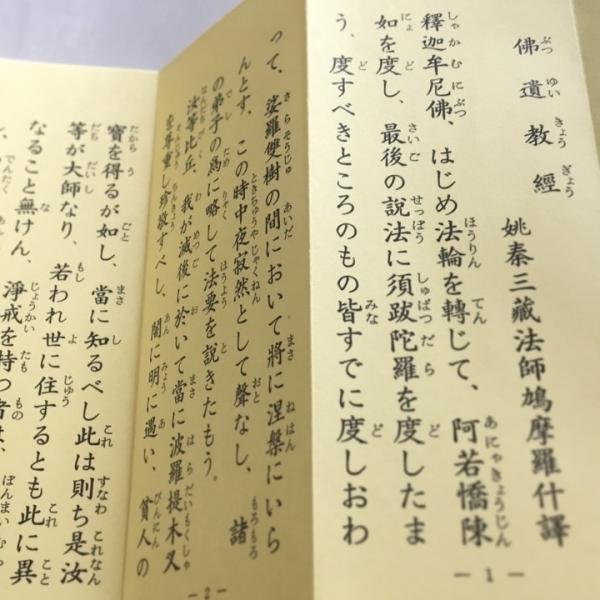 佛遺教經
姚秦三藏法師鳩摩羅什譯
釋迦牟尼佛、はじめ法輪を轉じて、阿若憍陳
如を度し、最後の說法に須跋陀羅を度したま
う、度すべきところのもの皆すでに度しおわ
— 1 —
って、娑羅雙樹の間において將に涅槃にいら
んとす、この時中夜寂然として聲なし、諸
の弟子の為に略して法要を說きたもう。
汝等比丘、我が滅後に於いて當に波羅提木叉
を尊重し珍敬すべし、闇に明に遇い、貧人の
— 2 —
寶を得るが如し、當に知るべし此は則ち是汝
等が大師なり、若われ世に住するとも此に異
なること無けん、淨戒を持つ者は、